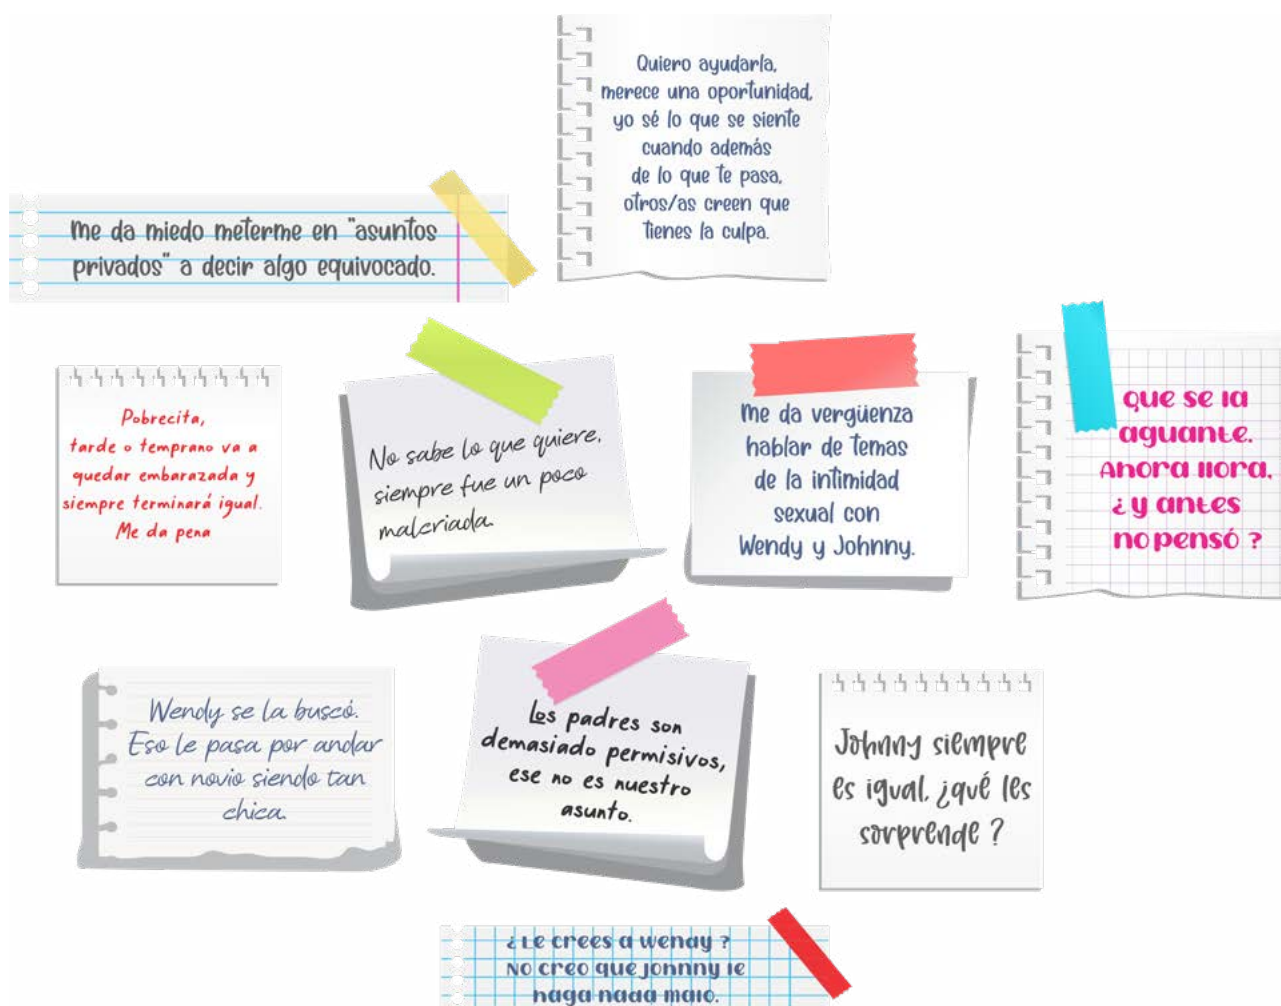 Quiero ayudarla,
merece una oportunidad,
yo sé lo que se siente
cuando además
de lo que te pasa,
otros/as creen que
tienes la culpa.
Me da miedo meterme en "asuntos
privados" a decir algo equivocado.
Pobrecita,
tarde o temprano va a
quedar embarazada y
siempre terminará igual.
Me da pena
No sabe lo que quiere,
siempre fue un poco
malcriada.
Me da vergüenza
hablar de temas
de la intimidad
sexual con
Wendy y Johnny.
Que se la
aguante.
Ahora llora,
¿y antes
no pensó?
Wendy se la buscó.
Eso le pasa por andar
con novio siendo tan
chica.
Los padres son
demasiado permisivos,
ese no es nuestro
asunto.
Johnny siempre
es igual, ¿qué les
sorprende?
¿Le crees a Wendy?
No creo que Johnny le
haga nada malo.